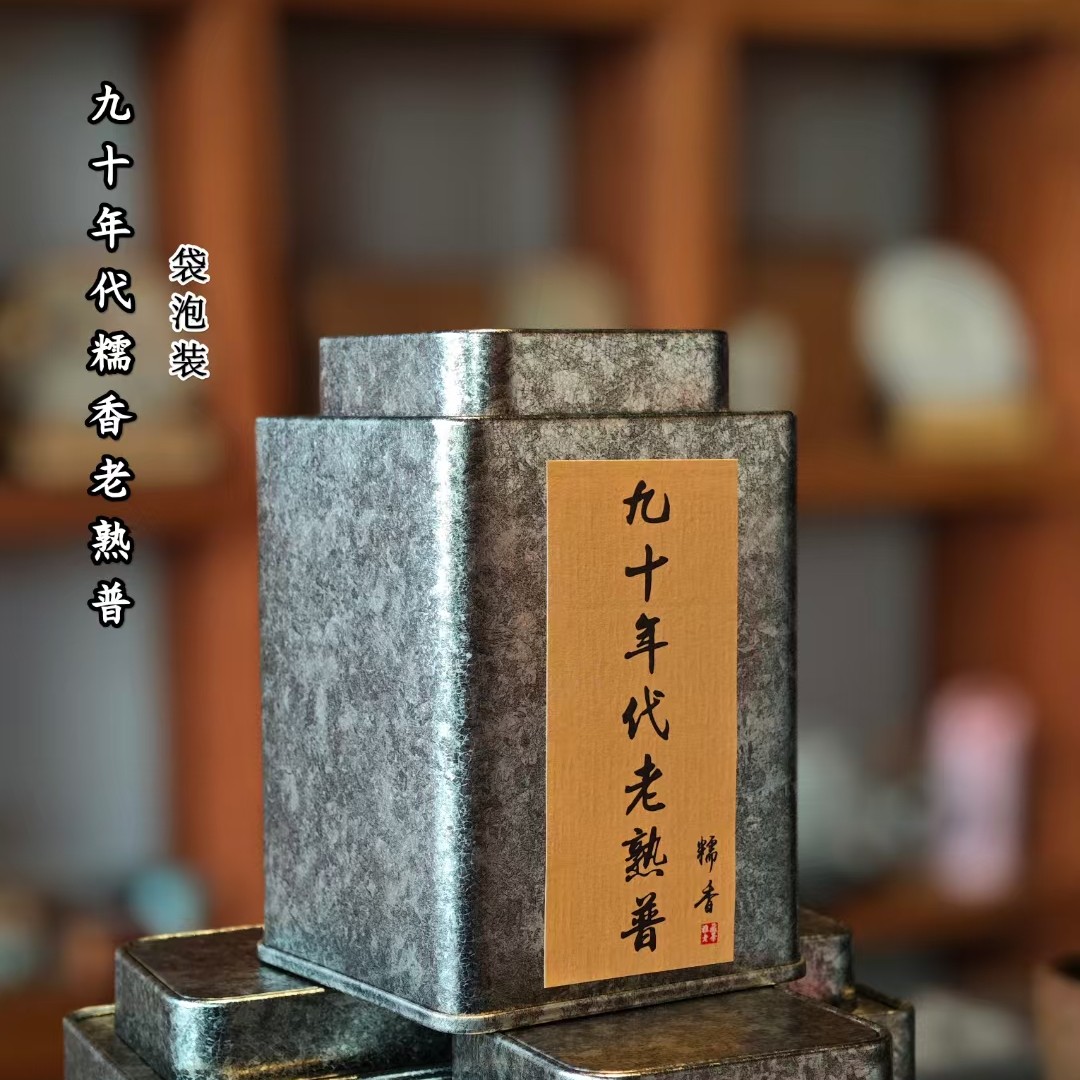 九十年代糯香老熟普
袋泡装
九十年代老熟普
糯香